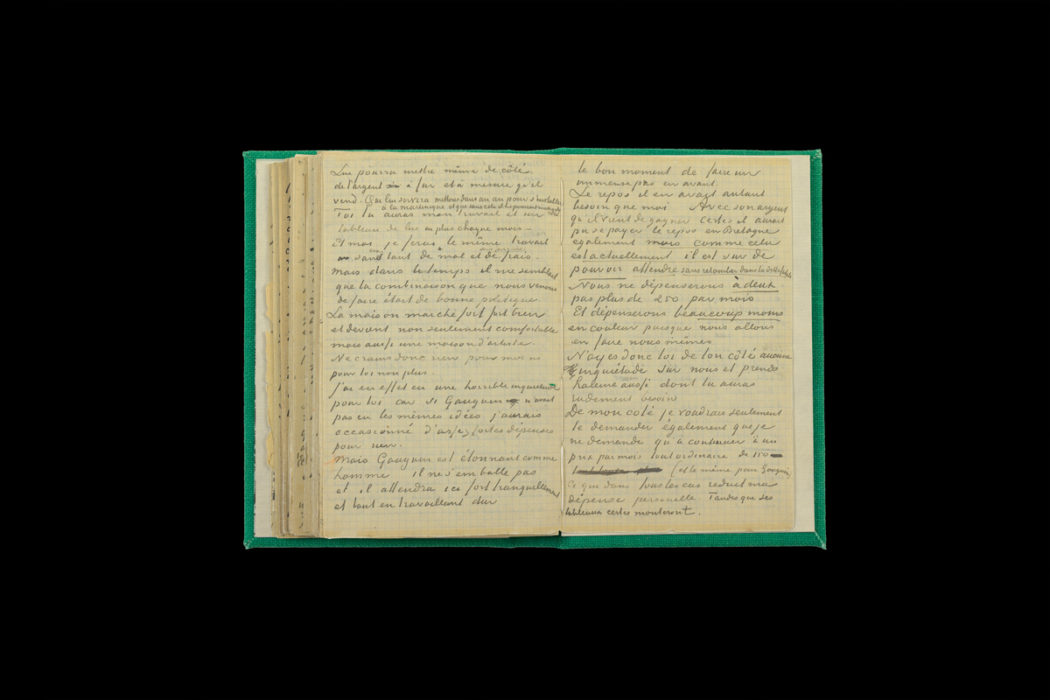 Lui pourra mettre même de côté
de l'argent à fur et à mesure qu'il
vend. Ça lui servira dans un an pour s'installer
à la martinique et que sans cela il ne pourrait
Toi tu auras mon travail et un
tableau de lui en plus chaque mois.
Et moi je ferai le même travail
sans tant de mal et de frais.
Mais dans le temps il me semblait
que la combinaison que nous venons
de faire était de bonne politique
La maison marche fort fort bien
et devient non seulement comfortable
mais aussi une maison d'artiste.
Ne crains donc rien pour moi ni
pour toi non plus.
J'ai en effet eu une horrible inquiétude
pour toi car si Gauguin n'avait
pas eu les mêmes idées j'aurais
occasionné d'assez fortes dépenses
pour rien.
Mais Gauguin est étonnant comme
homme il ne s'emballe pas
et il attendra ici fort tranquillement
et tout en travaillant dur
le bon moment de faire un
immense pas en avant.
Le repos il en avait autant
besoin que moi Avec son argent
qu'il vient de gagner certes il aurait
pu se payer le repos en Bretagne
également mais comme cela
est actuellement il est sur de
pouvoir attendre sans retomber dans la dette
Nous ne dépenserons à deux
pas plus de 250 par mois
Et dépenserons beaucoup moins
en couleur puisque nous allons
en faire nous mêmes
N'ayes donc toi de ton côté aucune
inquiétude sur nous et prends
haleine aussi dont tu auras
rudement besoin
De mon coté je voudrais seulement
te demander également que je
ne demande qu'à continuer à un
prix par mois tout ordinaire de 150
(et le même pour Gauguin)
Ce que dans tous les cas reduit ma
dépense personelle Tandis que ses
tableaux certes monteront.